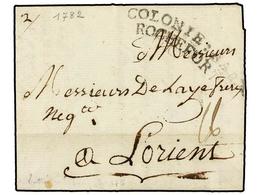 1782
COLONIES PAR
ROCHEFOR
Messieurs
Messieurs De Laye freres
Neg.ts
a Lorient